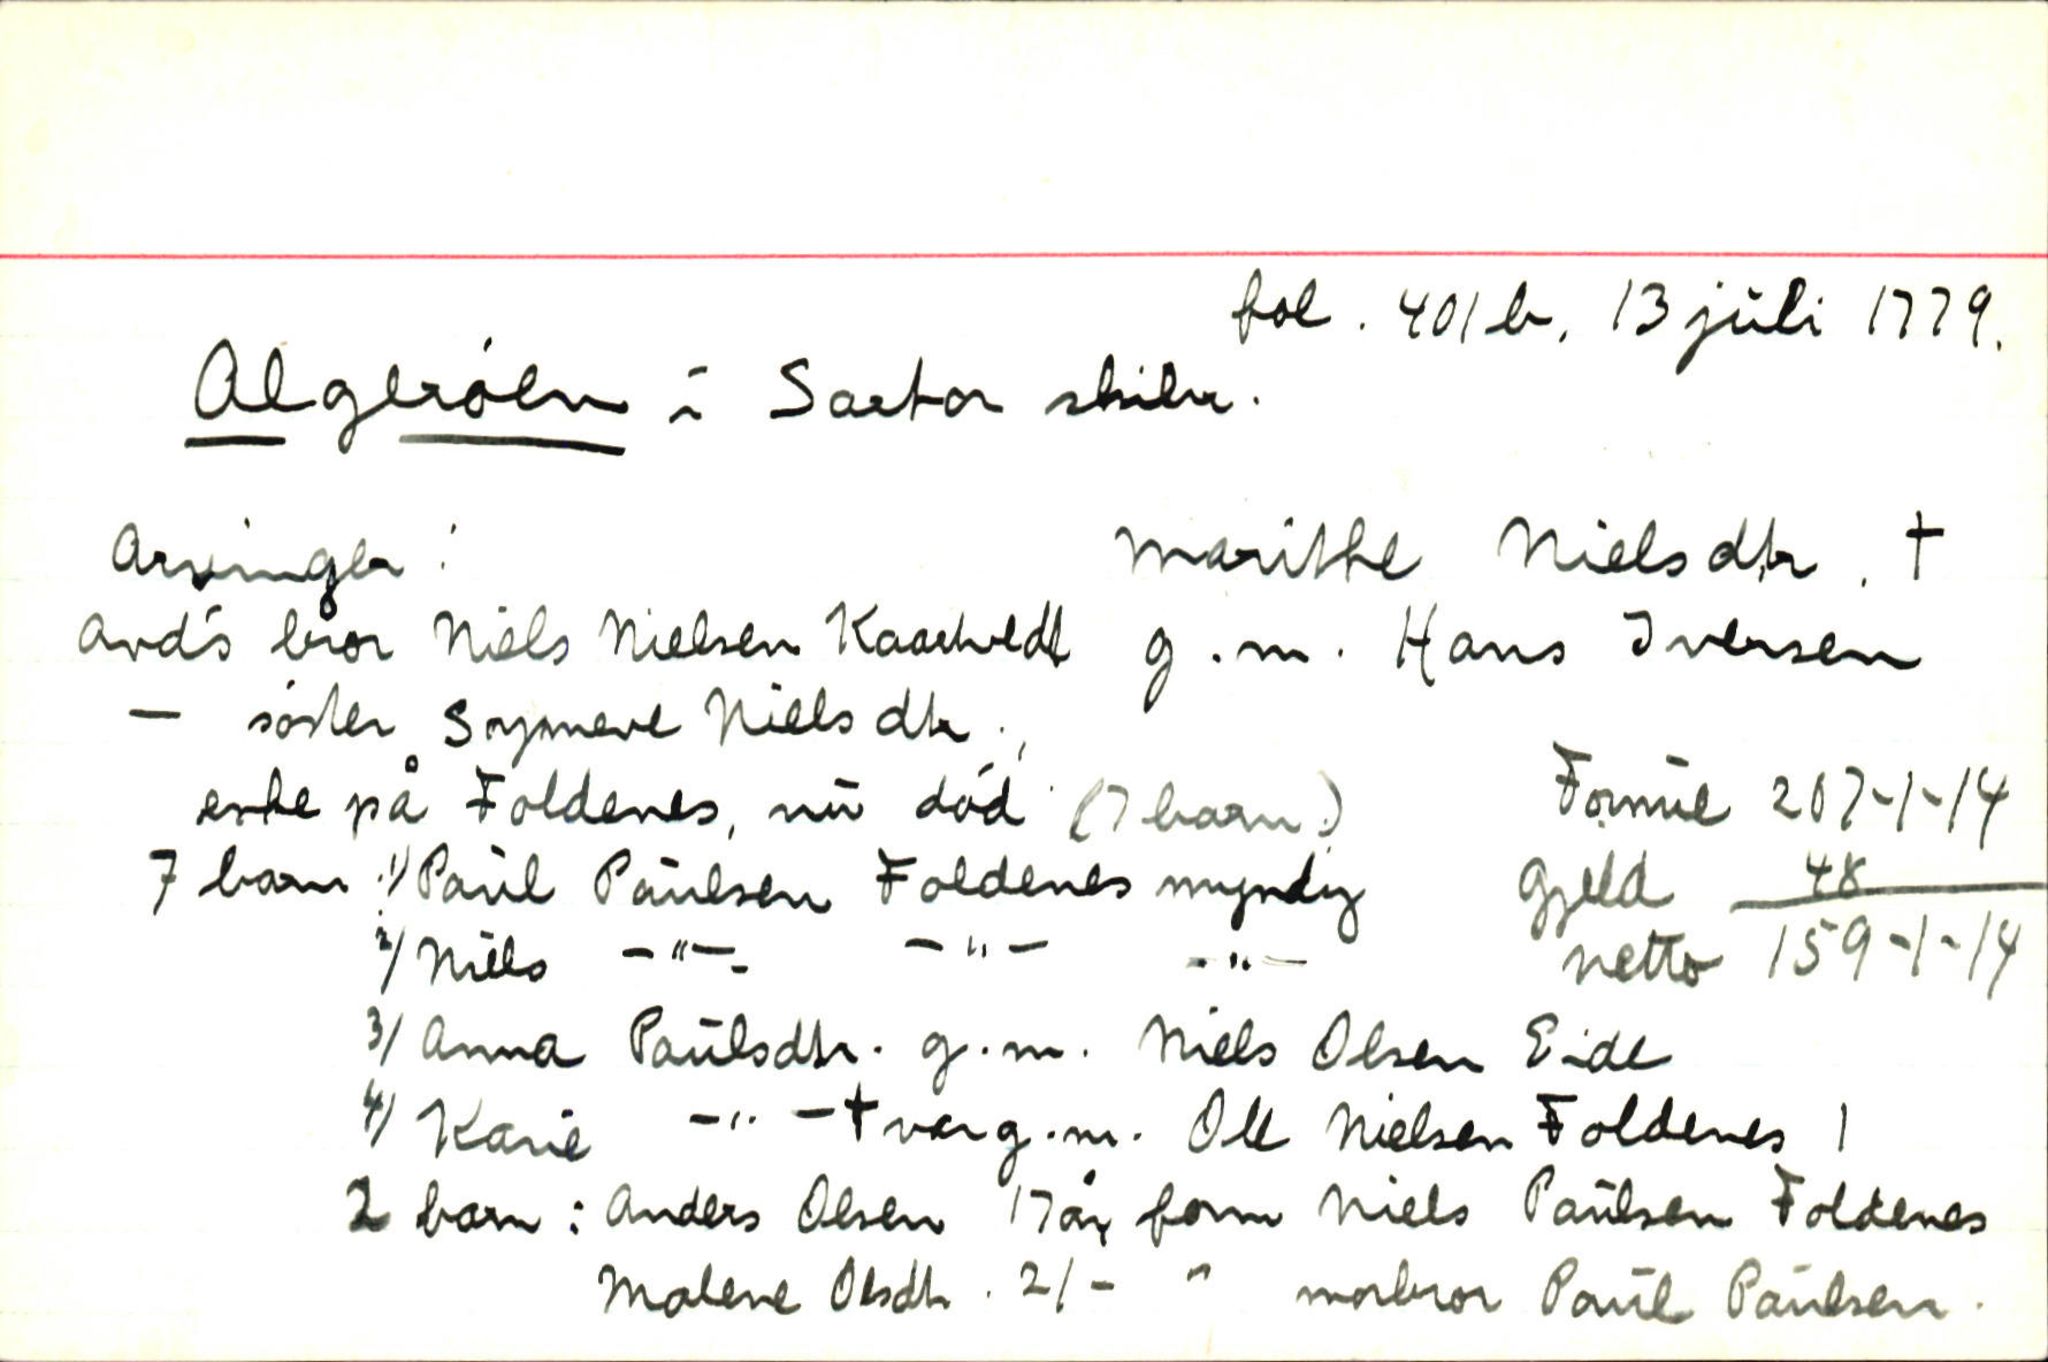 fol. 401 b, 13 juli 1779.
Algeröen i Sartor skibr.
Arvinger: Marithe Nielsdtr. †
Avd's bror Niels Nielsen Kaartvedt g.m. Hans Iversen
— söster Synneve Nielsdtr.,
enke på Foldenes, nu död (7 barn) Formue 207-1-14
7 barn: 1/ Paul Paulsen Foldenes myndig Gjeld 48
2/ Niels -"- -"- -"- netto 159-1-14
3/ Anna Paulsdtr. g.m. Niels Olsen Eide
4/ Karie -"- † var g.m. Ole Nielsen Foldenes /
2 barn: Anders Olsen 17 år form Niels Paulsen Foldenes
Malene Olsdtr. 21 - " morbror Paul Paulsen.